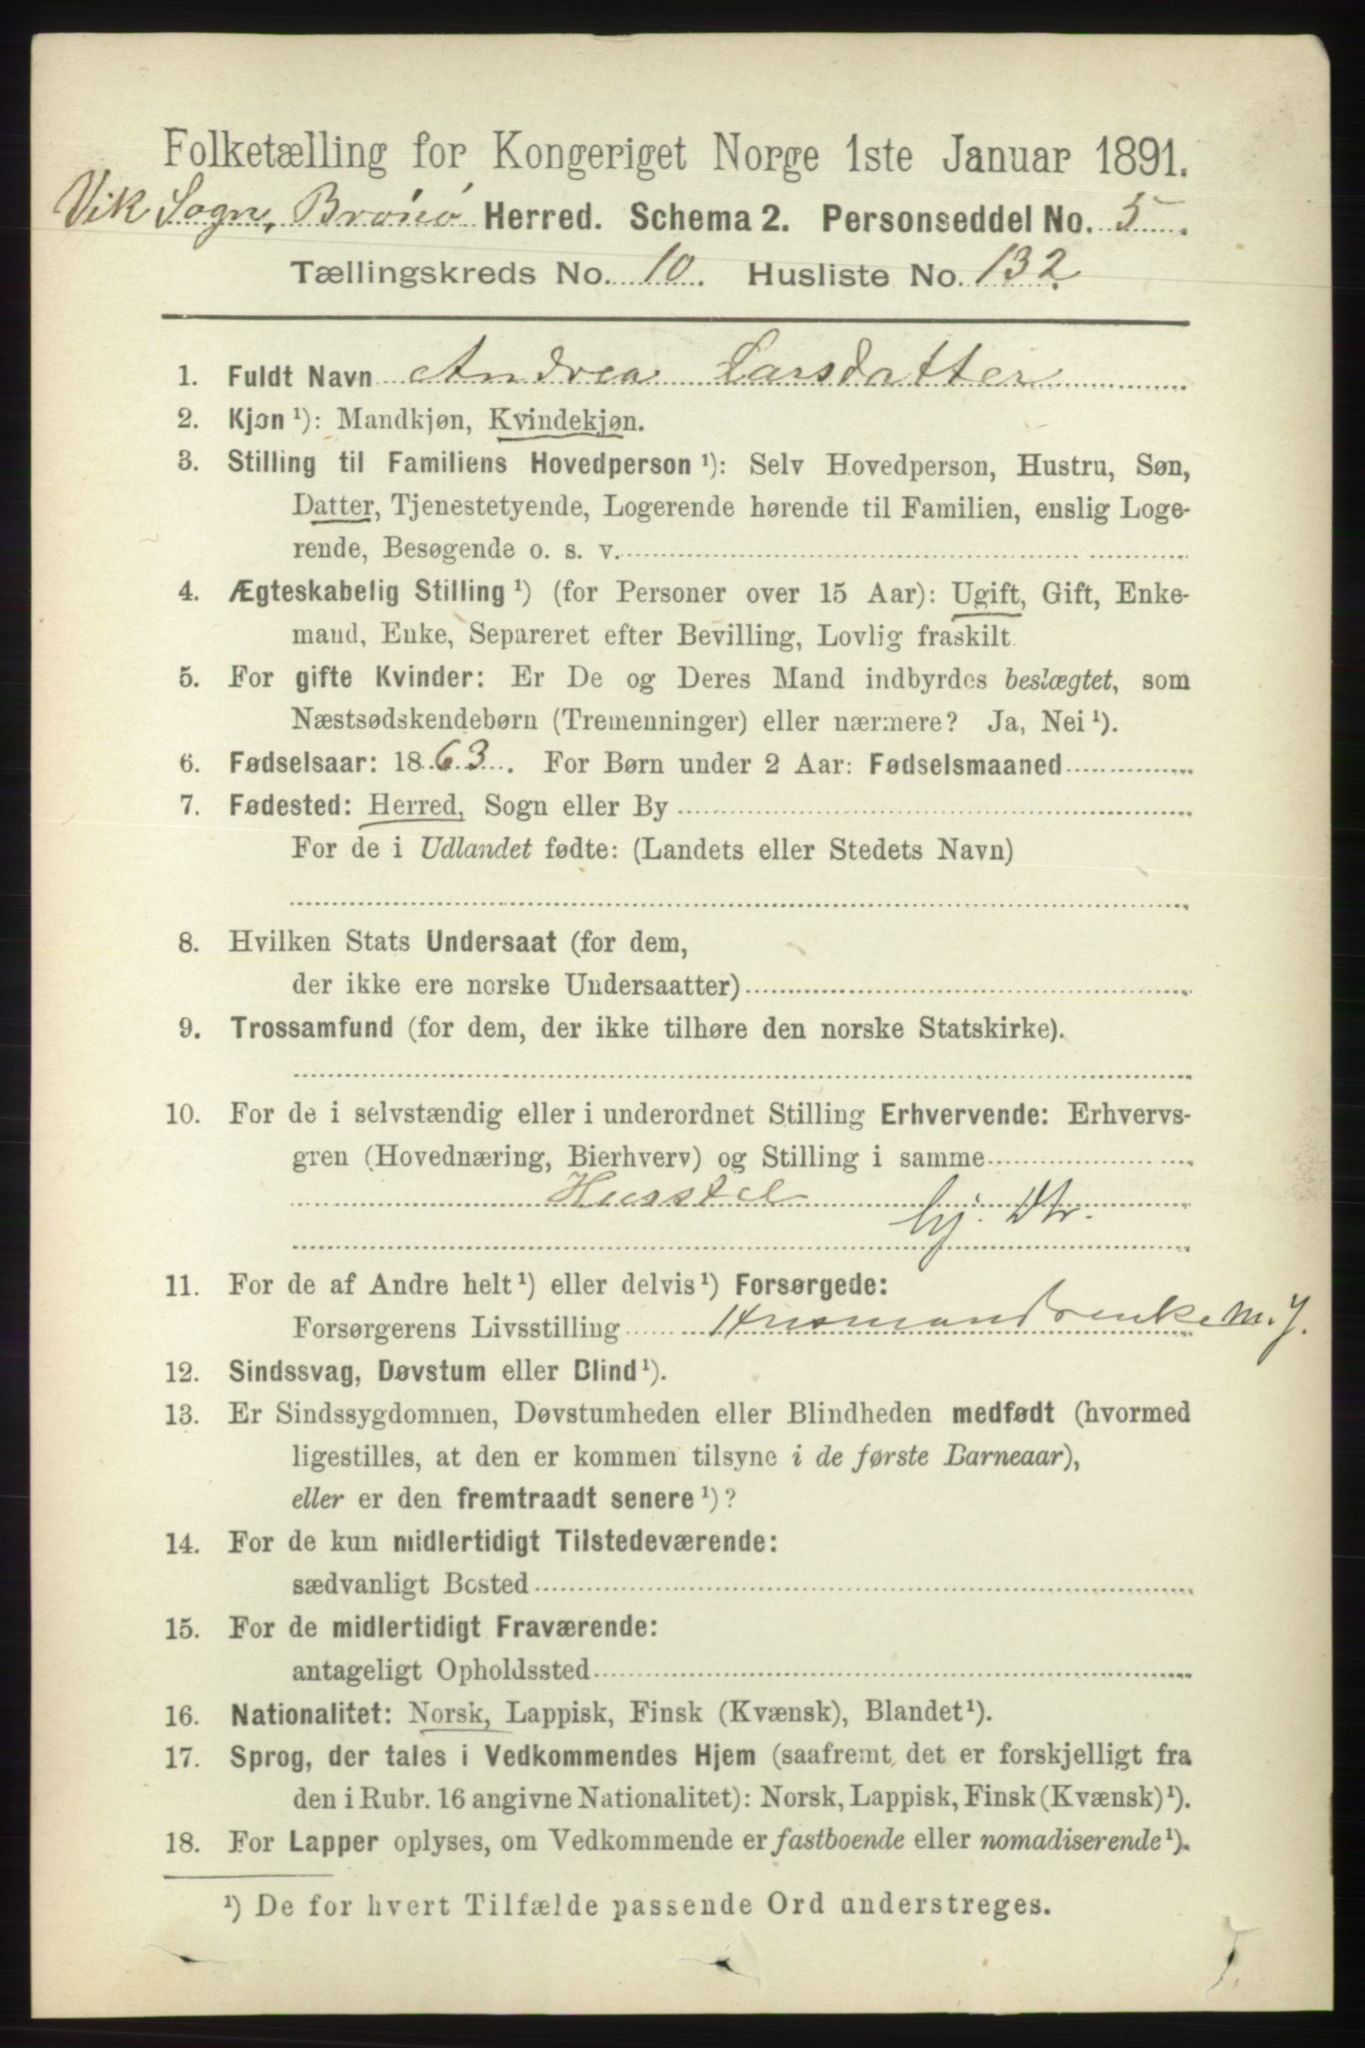 Folketælling for Kongeriget Norge 1ste Januar 1891.
Vik Sogn, Brønø Herred. Schema 2. Personseddel No. 5.
Tællingskreds No. 10. Husliste No. 132.
1. Fuldt Navn Andrea Larsdatter
2. Kjøn ¹): Mandkjøn, Kvindekjøn.
3. Stilling til Familiens Hovedperson ¹): Selv Hovedperson, Hustru, Søn,
Datter, Tjenestetyende, Logerende hørende til Familien, enslig Loge-
rende, Besøgende o. s. v.
4. Ægteskabelig Stilling ¹) (for Personer over 15 Aar): Ugift, Gift, Enke-
mand, Enke, Separeret efter Bevilling, Lovlig fraskilt.
5. For gifte Kvinder: Er De og Deres Mand indbyrdes beslægtet, som
Næstsødskendebørn (Tremenninger) eller nærmere? Ja, Nei ¹).
6. Fødselsaar: 1863. For Børn under 2 Aar: Fødselsmaaned
7. Fødested: Herred, Sogn eller By
For de i Udlandet fødte: (Landets eller Stedets Navn)
8. Hvilken Stats Undersaat (for dem,
der ikke ere norske Undersaatter)
9. Trossamfund (for dem, der ikke tilhøre den norske Statskirke).
10. For de i selvstændig eller i underordnet Stilling Erhvervende: Erhvervs-
gren (Hovednæring, Bierhverv) og Stilling i samme
Husstel
hj. Dtr.
11. For de af Andre helt ¹) eller delvis ¹) Forsørgede:
Forsørgerens Livsstilling Husmandsenke m. J.
12. Sindssvag, Døvstum eller Blind ¹).
13. Er Sindssygdommen, Døvstumheden eller Blindheden medfødt (hvormed
ligestilles, at den er kommen tilsyne i de første Barneaar),
eller er den fremtraadt senere ¹)?
14. For de kun midlertidigt Tilstedeværende:
sædvanligt Bosted
15. For de midlertidigt Fraværende:
antageligt Opholdssted
16. Nationalitet: Norsk, Lappisk, Finsk (Kvænsk), Blandet ¹).
17. Sprog, der tales i Vedkommendes Hjem (saafremt det er forskjelligt fra
den i Rubr. 16 angivne Nationalitet): Norsk, Lappisk, Finsk (Kvænsk) ¹).
18. For Lapper oplyses, om Vedkommende er fastboende eller nomadiserende ¹).
¹) De for hvert Tilfælde passende Ord understreges.
T.